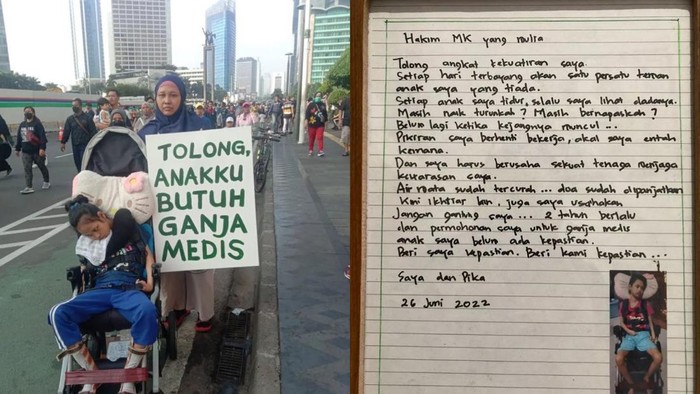 TOLONG,
ANAKKU
BUTUH
GANJA
MEDIS
Hakim MK yang mulia
Tolong angkat kekuatiran saya.
Setiap hari terbayang akan satu persatu teman
anak saya yang tiada.
Setiap anak saya tidur, selalu saya lihat dadanya.
Masih naik turunkah? Masih bernapaskah?
Belum lagi ketika kejangnya muncul...
Pikiran saya berhenti bekerja, akal saya entah
kemana.
Dan saya harus berusaha sekuat tenaga menjaga
kewarasan saya.
Air mata sudah tercurah... doa sudah dipanjatkan
Kini ikhtiar lain, juga saya usahakan
Jangan gantung saya... 2 tahun berlalu
dan permohonan saya untuk ganja medis
anak saya belum ada kepastian.
Beri saya kepastian. Beri kami kepastian...
Saya dan Pika
26 Juni 2022